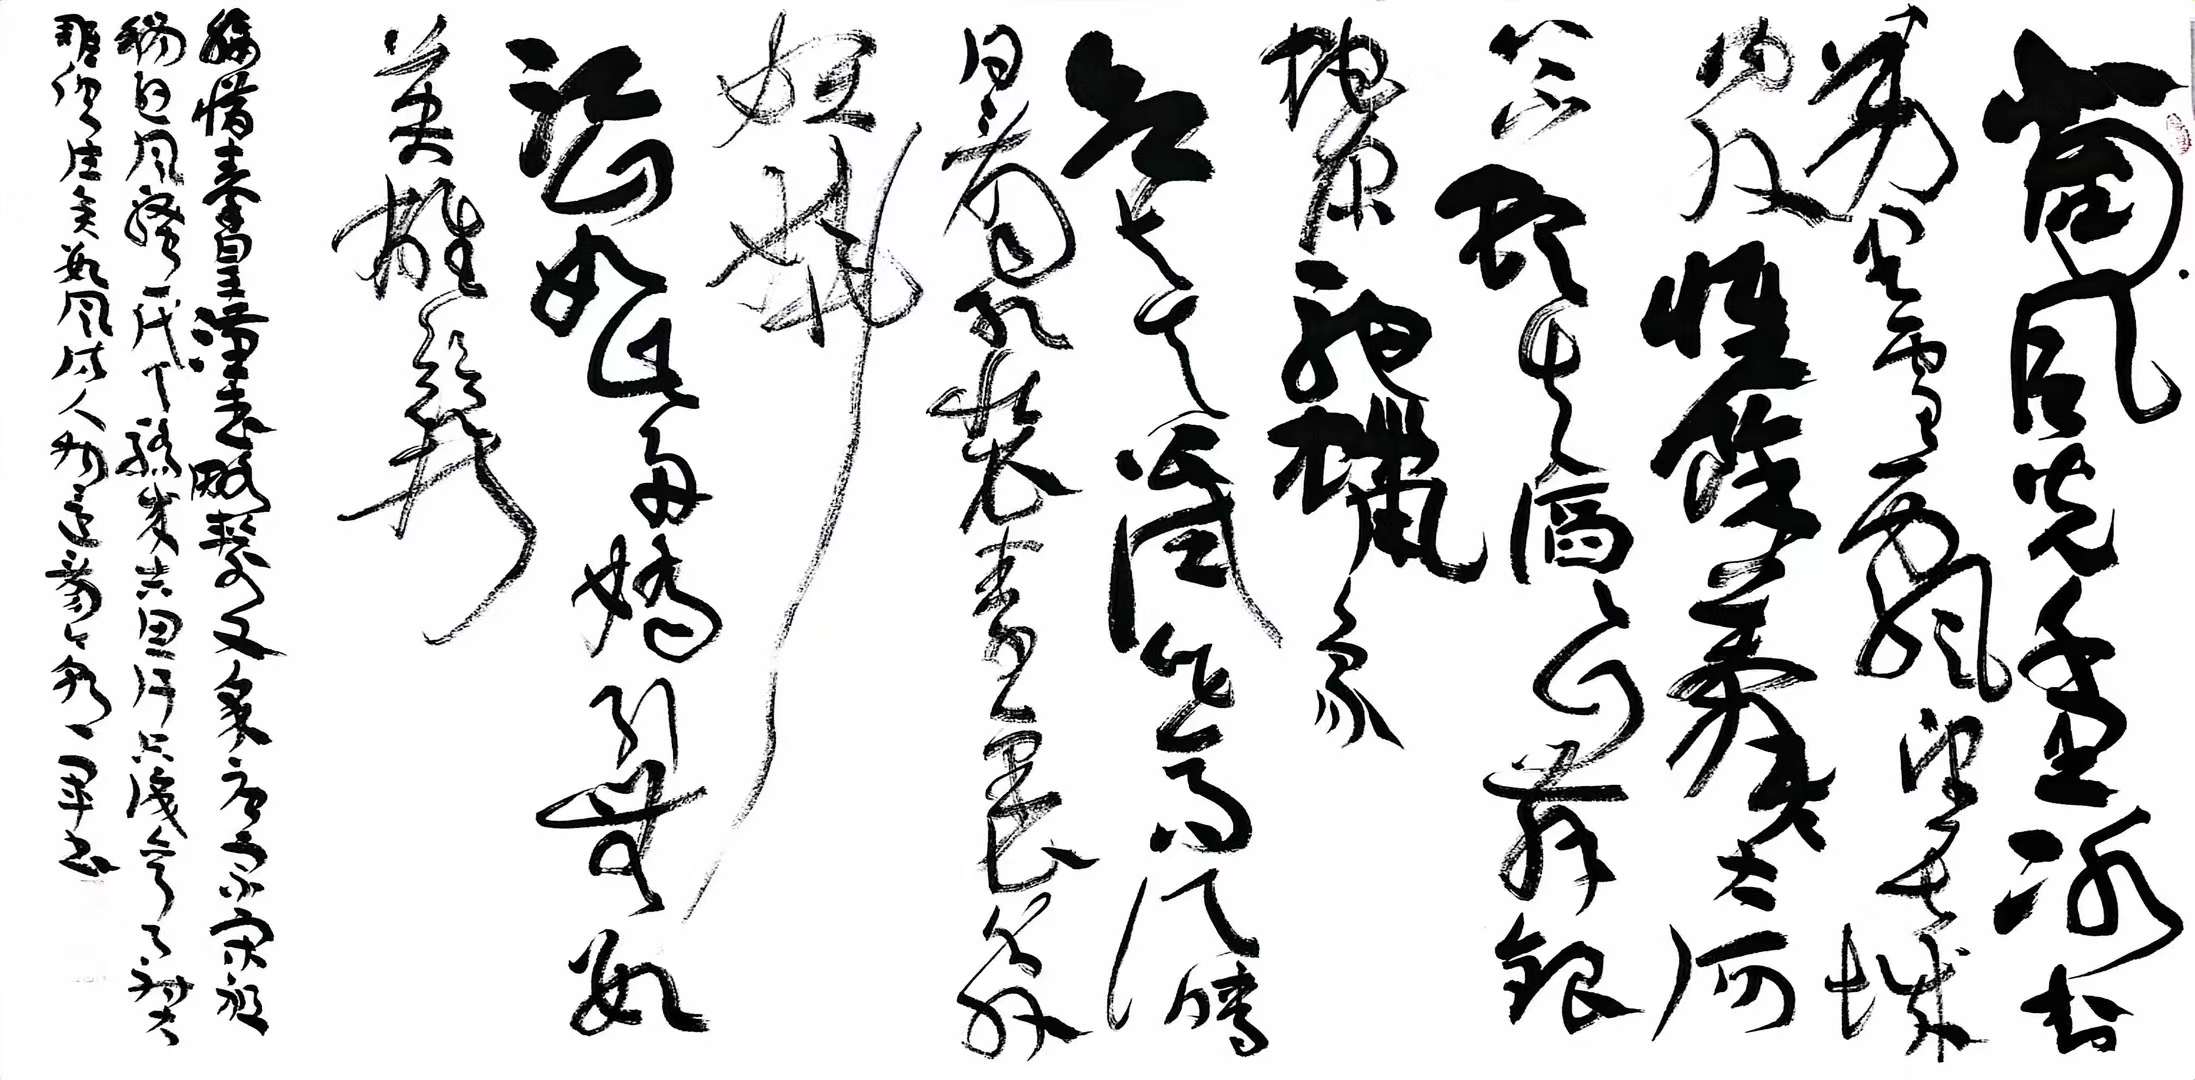 北國風光千里冰封
萬里雪飄望長城
內外惟餘莽莽大河
上下頓失滔滔山舞銀
蛇原馳蠟象
欲與天公試比高須晴
日看紅裝素裹分外
妖嬈
江山如此多嬌引無數
英雄競折
腰惜秦皇漢武略輸文采唐宗宋祖
稍遜風騷一代天驕成吉思汗只識彎弓射大
雕俱往矣數風流人物還看今朝